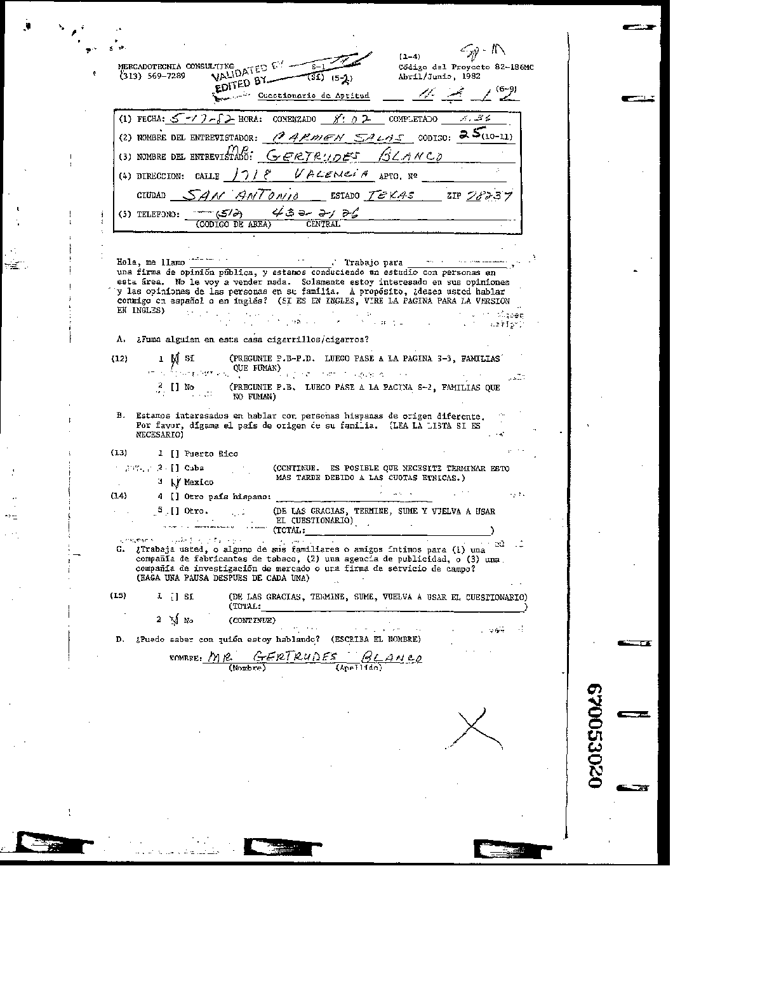 MERCADOTECNIA CONSULTING
(313) 569-7289
VALIDATED BY
EDITED BY
S-1
(SI) (5-2)
Cuestionario de Aptitud
(1-4)
Código del Proyecto 82-186MC
Abril/Junio, 1982
(6-9)
(1) FECHA: 5-17-82 HORA: COMENZADO 8:02 COMPLETADO
(2) NOMBRE DEL ENTREVISTADOR: CARMEN SALAS CODIGO: 25 (10-11)
(3) NOMBRE DEL ENTREVISTADO: MR. GERTRUDES BLANCO
(4) DIRECCION: CALLE 1718 VALENCIA APTO. Nº
CIUDAD SAN ANTONIO ESTADO TEXAS ZIP 78237
(5) TELEFONO: (512) 432-2126
(CODIGO DE AREA) CENTRAL
Hola, me llamo . Trabajo para ,
una firma de opinión pública, y estamos conduciendo un estudio con personas en
esta área. No le voy a vender nada. Solamente estoy interesado en sus opiniones
y las opiniones de las personas en su familia. A propósito, ¿desea usted hablar
conmigo en español o en inglés? (SI ES EN INGLES, VIRE LA PAGINA PARA LA VERSION
EN INGLES)
A. ¿Fuma alguien en esta casa cigarrillos/cigarros?
(12) 1 [X] SI (PREGUNTE P.B-P.D. LUEGO PASE A LA PAGINA S-3, FAMILIAS
QUE FUMAN)
2 [] No (PREGUNTE P.B. LUEGO PASE A LA PAGINA S-2, FAMILIAS QUE
NO FUMAN)
B. Estamos interesados en hablar con personas hispanas de origen diferente.
Por favor, dígame el país de origen de su familia. (LEA LA LISTA SI ES
NECESARIO)
(13) 1 [] Puerto Rico
2 [] Cuba (CONTINUE. ES POSIBLE QUE NECESITE TERMINAR ESTO
3 [X] Mexico MAS TARDE DEBIDO A LAS CUOTAS ETNICAS.)
(14) 4 [] Otro país hispano:
5 [] Otro. (DE LAS GRACIAS, TERMINE, SUME Y VUELVA A USAR
EL CUESTIONARIO)
(TOTAL: )
C. ¿Trabaja usted, o alguno de sus familiares o amigos íntimos para (1) una
compañía de fabricantes de tabaco, (2) una agencia de publicidad, o (3) una
compañía de investigación de mercado o una firma de servicio de campo?
(HAGA UNA PAUSA DESPUES DE CADA UNA)
(15) 1 [] SI (DE LAS GRACIAS, TERMINE, SUME, VUELVA A USAR EL CUESTIONARIO)
(TOTAL: )
2 [X] No (CONTINUE)
D. ¿Puedo saber con quién estoy hablando? (ESCRIBA EL NOMBRE)
NOMBRE: MR. GERTRUDES BLANCO
(Nombre) (Apellido)
670053020